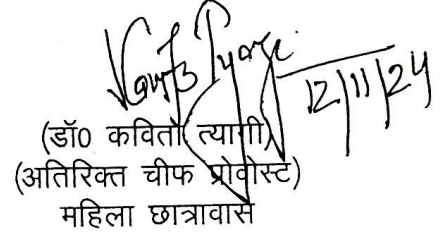 Kavita Tyagi
12/11/24
(डॉ0 कविता त्यागी)
(अतिरिक्त चीफ प्रोवोस्ट)
महिला छात्रावास